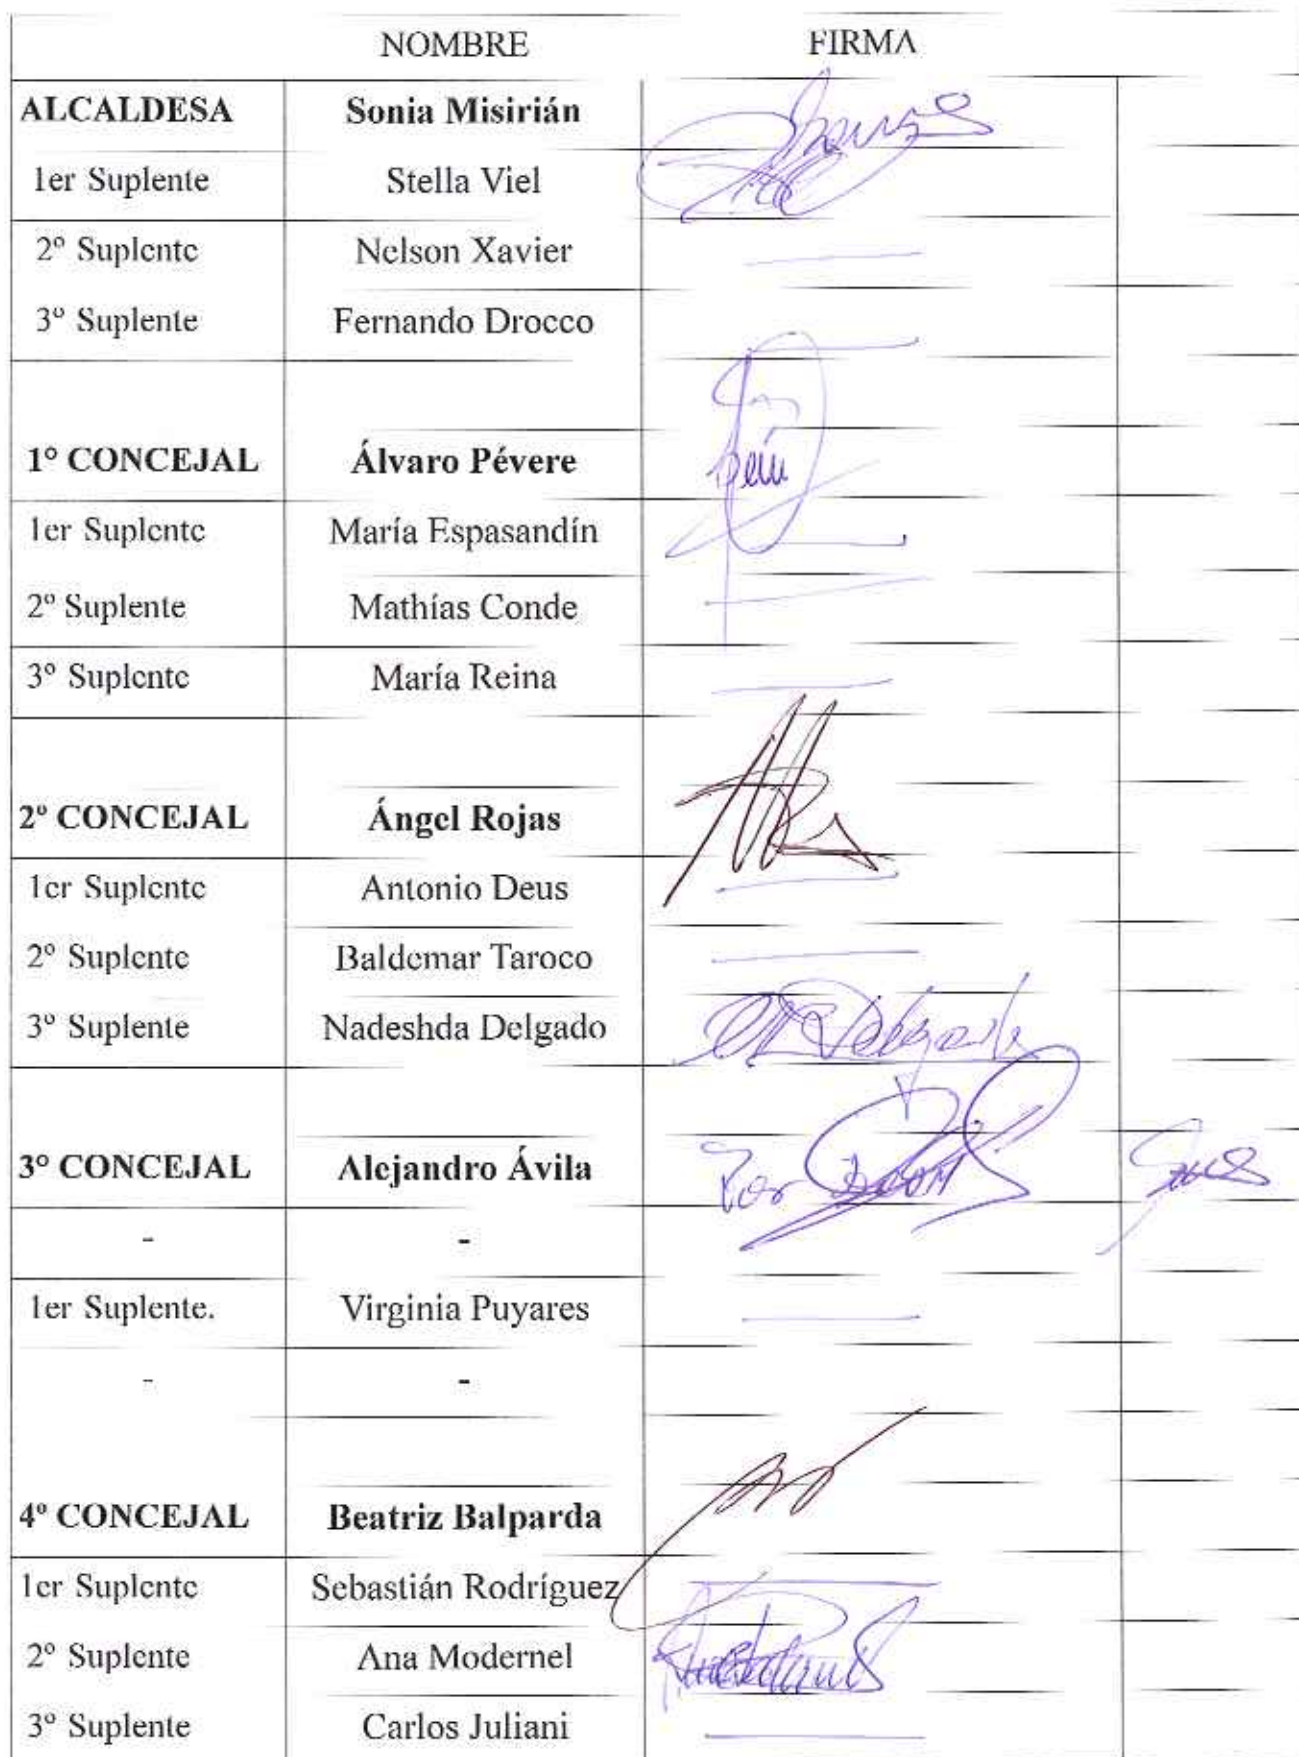 NOMBRE FIRMA
ALCALDESA Sonia Misirián
1er Suplente Stella Viel
2º Suplente Nelson Xavier
3º Suplente Fernando Drocco
1º CONCEJAL Álvaro Pévere
1er Suplente María Espasandín
2º Suplente Mathías Conde
3º Suplente María Reina
2º CONCEJAL Ángel Rojas
1er Suplente Antonio Deus
2º Suplente Baldemar Taroco
3º Suplente Nadeshda Delgado Delgado
3º CONCEJAL Alejandro Ávila Por
- -
1er Suplente. Virginia Puyares
- -
4º CONCEJAL Beatriz Balparda
1er Suplente Sebastián Rodríguez
2º Suplente Ana Modernel
3º Suplente Carlos Juliani